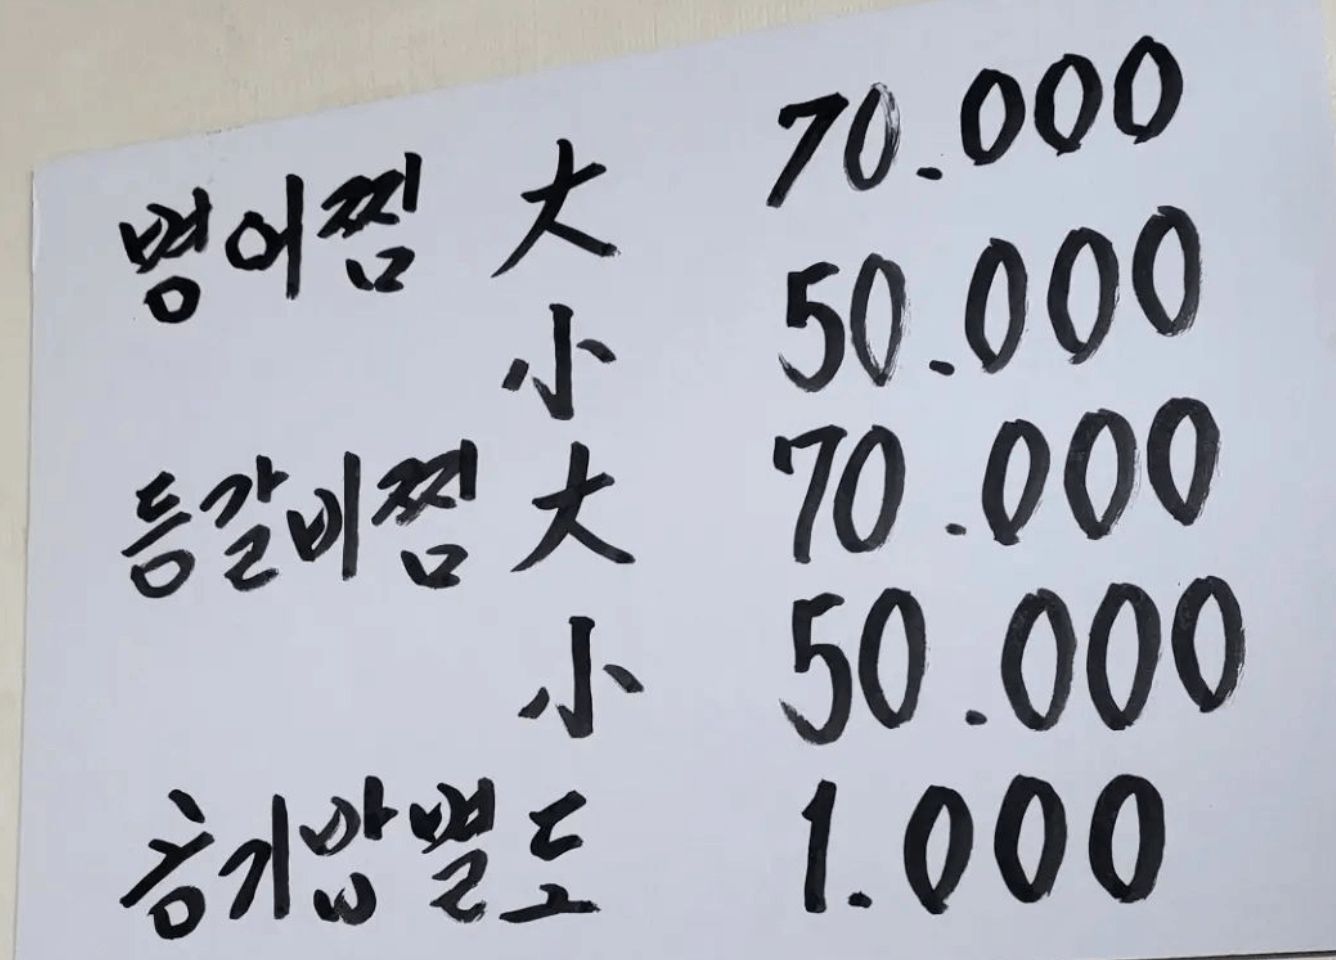 병어찜 大 70.000
小 50.000
등갈비찜 大 70.000
小 50.000
공기밥별도 1.000